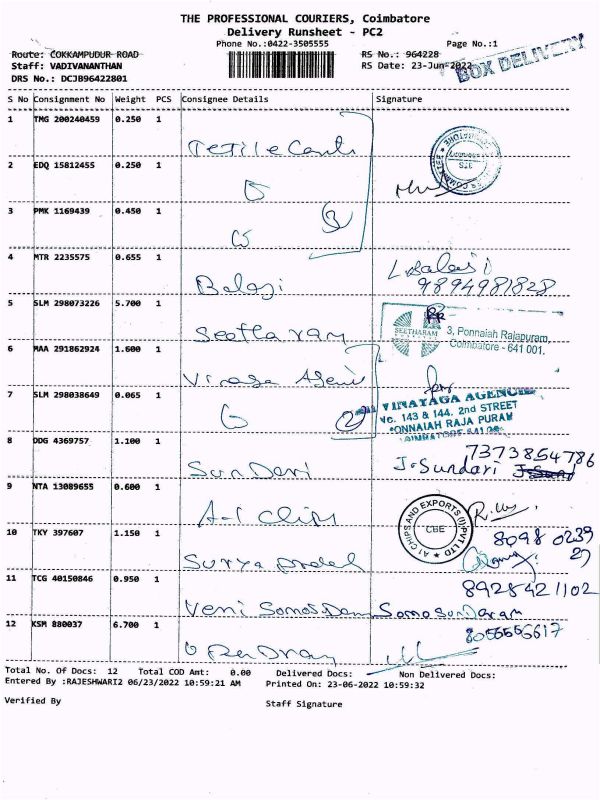 THE PROFESSIONAL COURIERS, Coimbatore
Delivery Runsheet - PC2
Phone No.:0422-3505555
Page No.:1
Route: COKKAMPUDUR ROAD
RS No.: 964228
Staff: VADIVANANTHAN
RS Date: 23-Jun-2022
BOX DELIVERY
DRS No.: DCJB96422801
S No Consignment No Weight PCS Consignee Details Signature
1 TMG 200240459 0.250 1
2 EDQ 15812455 0.250 1
3 PMK 1169439 0.450 1
3
4 MTR 2235575 0.655 1 Balaji L. Balaji
9894981828
5 SLM 298073226 5.700 1 Seetha ram
SEETHARAM 3, Ponnaiah Rajapuram,
Coimbatore - 641 001.
6 MAA 291862924 1.600 1
7 SLM 298038649 0.065 1 2
VINAYAGA AGENCIES
No. 143 & 144. 2nd STREET
PONNAIAH RAJA PURAM
8 DDG 4369757 1.100 1 SunDari J. Sundari
7373854786
9 NTA 13089655 0.600 1 A-1 Chips
A1 CHIPS AND EXPORTS (I) PVT LTD
CBE
10 TKY 397607 1.150 1 Surya
8098 0239
27
11 TCG 40150846 0.950 1 Somosundaram
8928421102
12 KSM 880037 6.700 1
8055555617
Total No. Of Docs: 12 Total COD Amt: 0.00 Delivered Docs: Non Delivered Docs:
Entered By :RAJESHWARI2 06/23/2022 10:59:21 AM Printed On: 23-06-2022 10:59:32
Verified By
Staff Signature